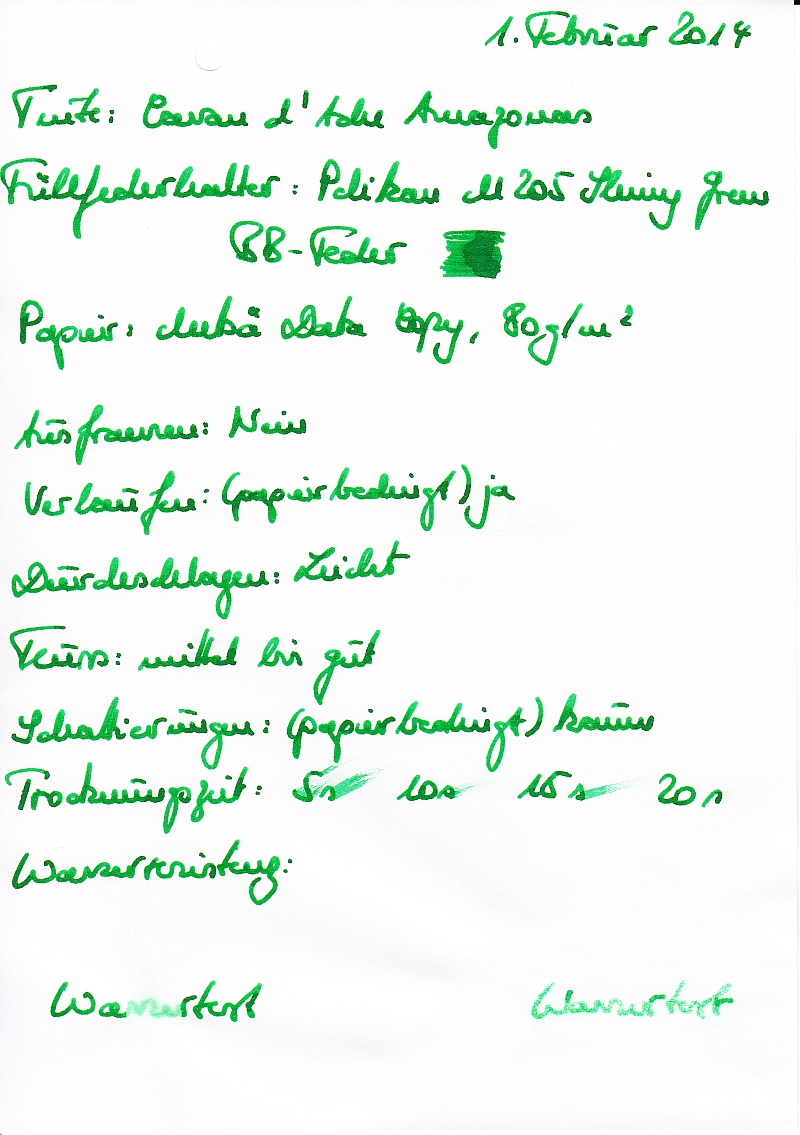 1. Februar 2014
Tinte: Caran d'Ache Amazonas
Füllfederhalter: Pelikan M205 Shiny Green
BB-Feder
Papier: Mukä Data Copy, 80g/m²
Ausfransen: Nein
Verlaufen: (papierbedingt) ja
Durchschlagen: Leicht
Fluss: mittel bis gut
Schattierungen: (papierbedingt) kaum
Trocknungszeit: 5s 10s 15s 20s
Wasserresistenz:
Wassertest Wassertest